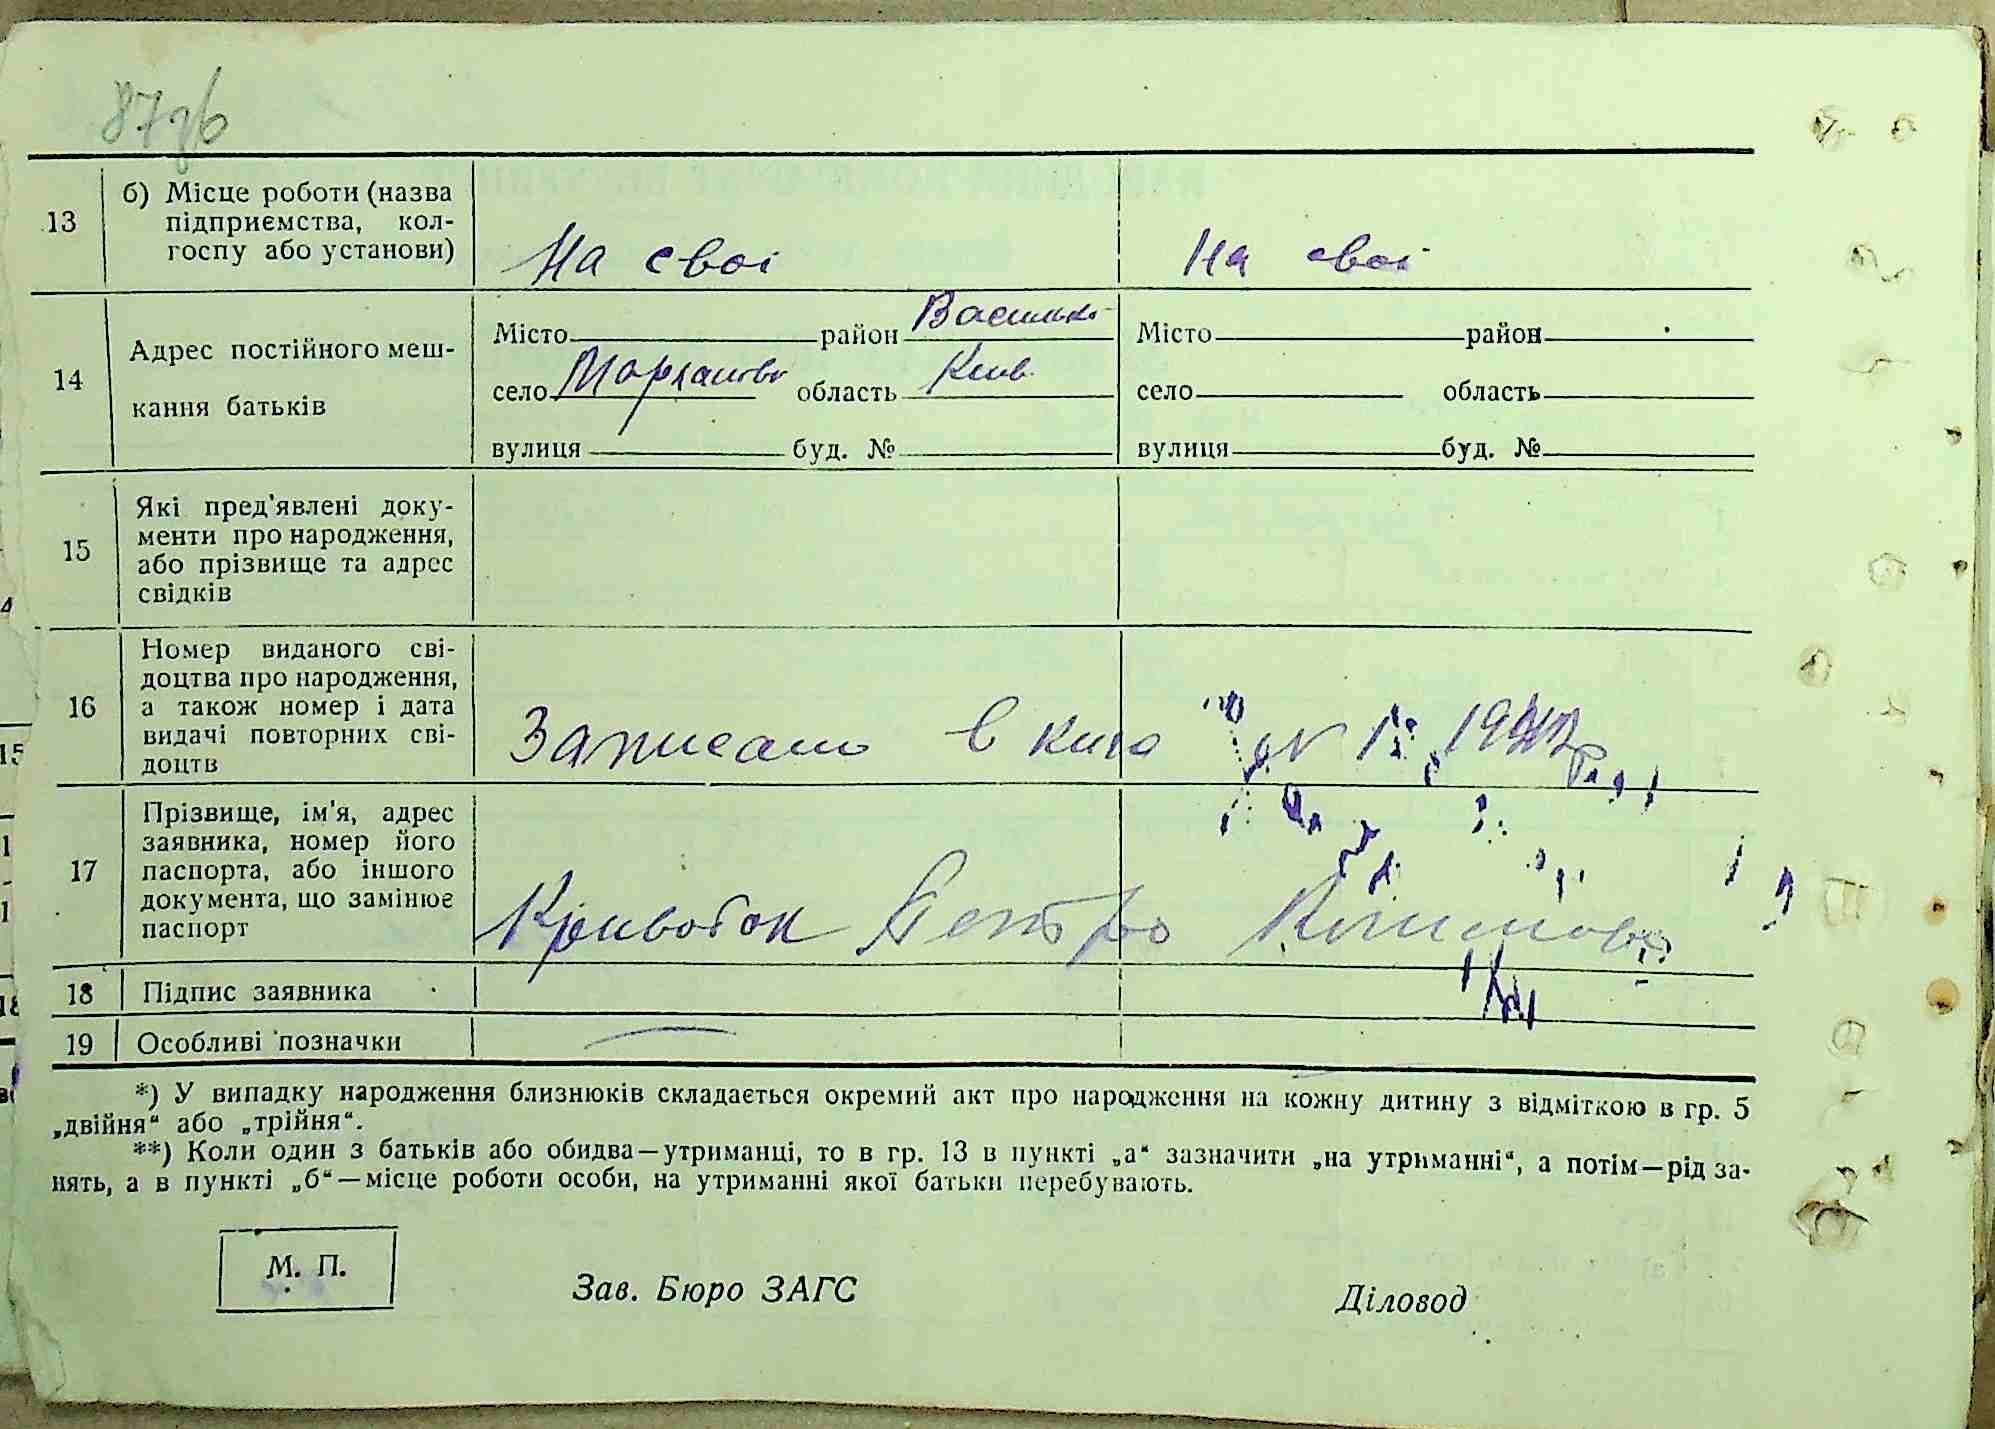 87зв
13
б) Місце роботи (назва
підприємства, кол-
госпу або установи)
На свої
На свої
14
Адрес постійного меш-
кання батьків
Місто район Васильк
село область Київ
вулиця буд. №
Місто район
село область
вулиця буд. №
15
Які пред'явлені доку-
менти про народження,
або прізвище та адрес
свідків
16
Номер виданого сві-
доцтва про народження,
а також номер і дата
видачі повторних сві-
доцтв
Записано в книго
17
Прізвище, ім'я, адрес
заявника, номер його
паспорта, або іншого
документа, що замінює
паспорт
Петро
18 Підпис заявника
19 Особливі позначки
*) У випадку народження близнюків складається окремий акт про народження на кожну дитину з відміткою в гр. 5
„двійня“ або „трійня“.
**) Коли один з батьків або обидва—утриманці, то в гр. 13 в пункті „а“ зазначити „на утриманні“, а потім—рід за-
нять, а в пункті „б“—місце роботи особи, на утриманні якої батьки перебувають.
М. П.
Зав. Бюро ЗАГС
Діловод